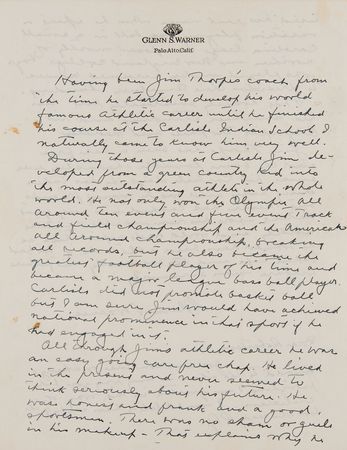 GLENN S. WARNER
Palo Alto Calif.
Having been Jim Thorpe's coach from
the time he started to develop his world
famous Athletic career until he finished
his course at the Carlisle Indian School I
naturally came to know him very well.
During those years at Carlisle Jim de-
veloped from a green country kid into
the most outstanding athlete in the whole
world. He not only won the Olympic All
Around ten event and five event Track
and field championship and the American
All Around Championship, breaking
all records, but he also became the
greatest football player of his time and
became a major league base ball player.
Carlisle did not promote basket ball
but I am sure Jim would have achieved
national prominence in that sport if he
had engaged in it.
All through Jim's athletic career he was
an easy going care free chap. He lived
in the present and never seemed to
think seriously about his future. He
was honest and frank and a good
sportsman. There was no sham or guile
in his makeup - That explains why he